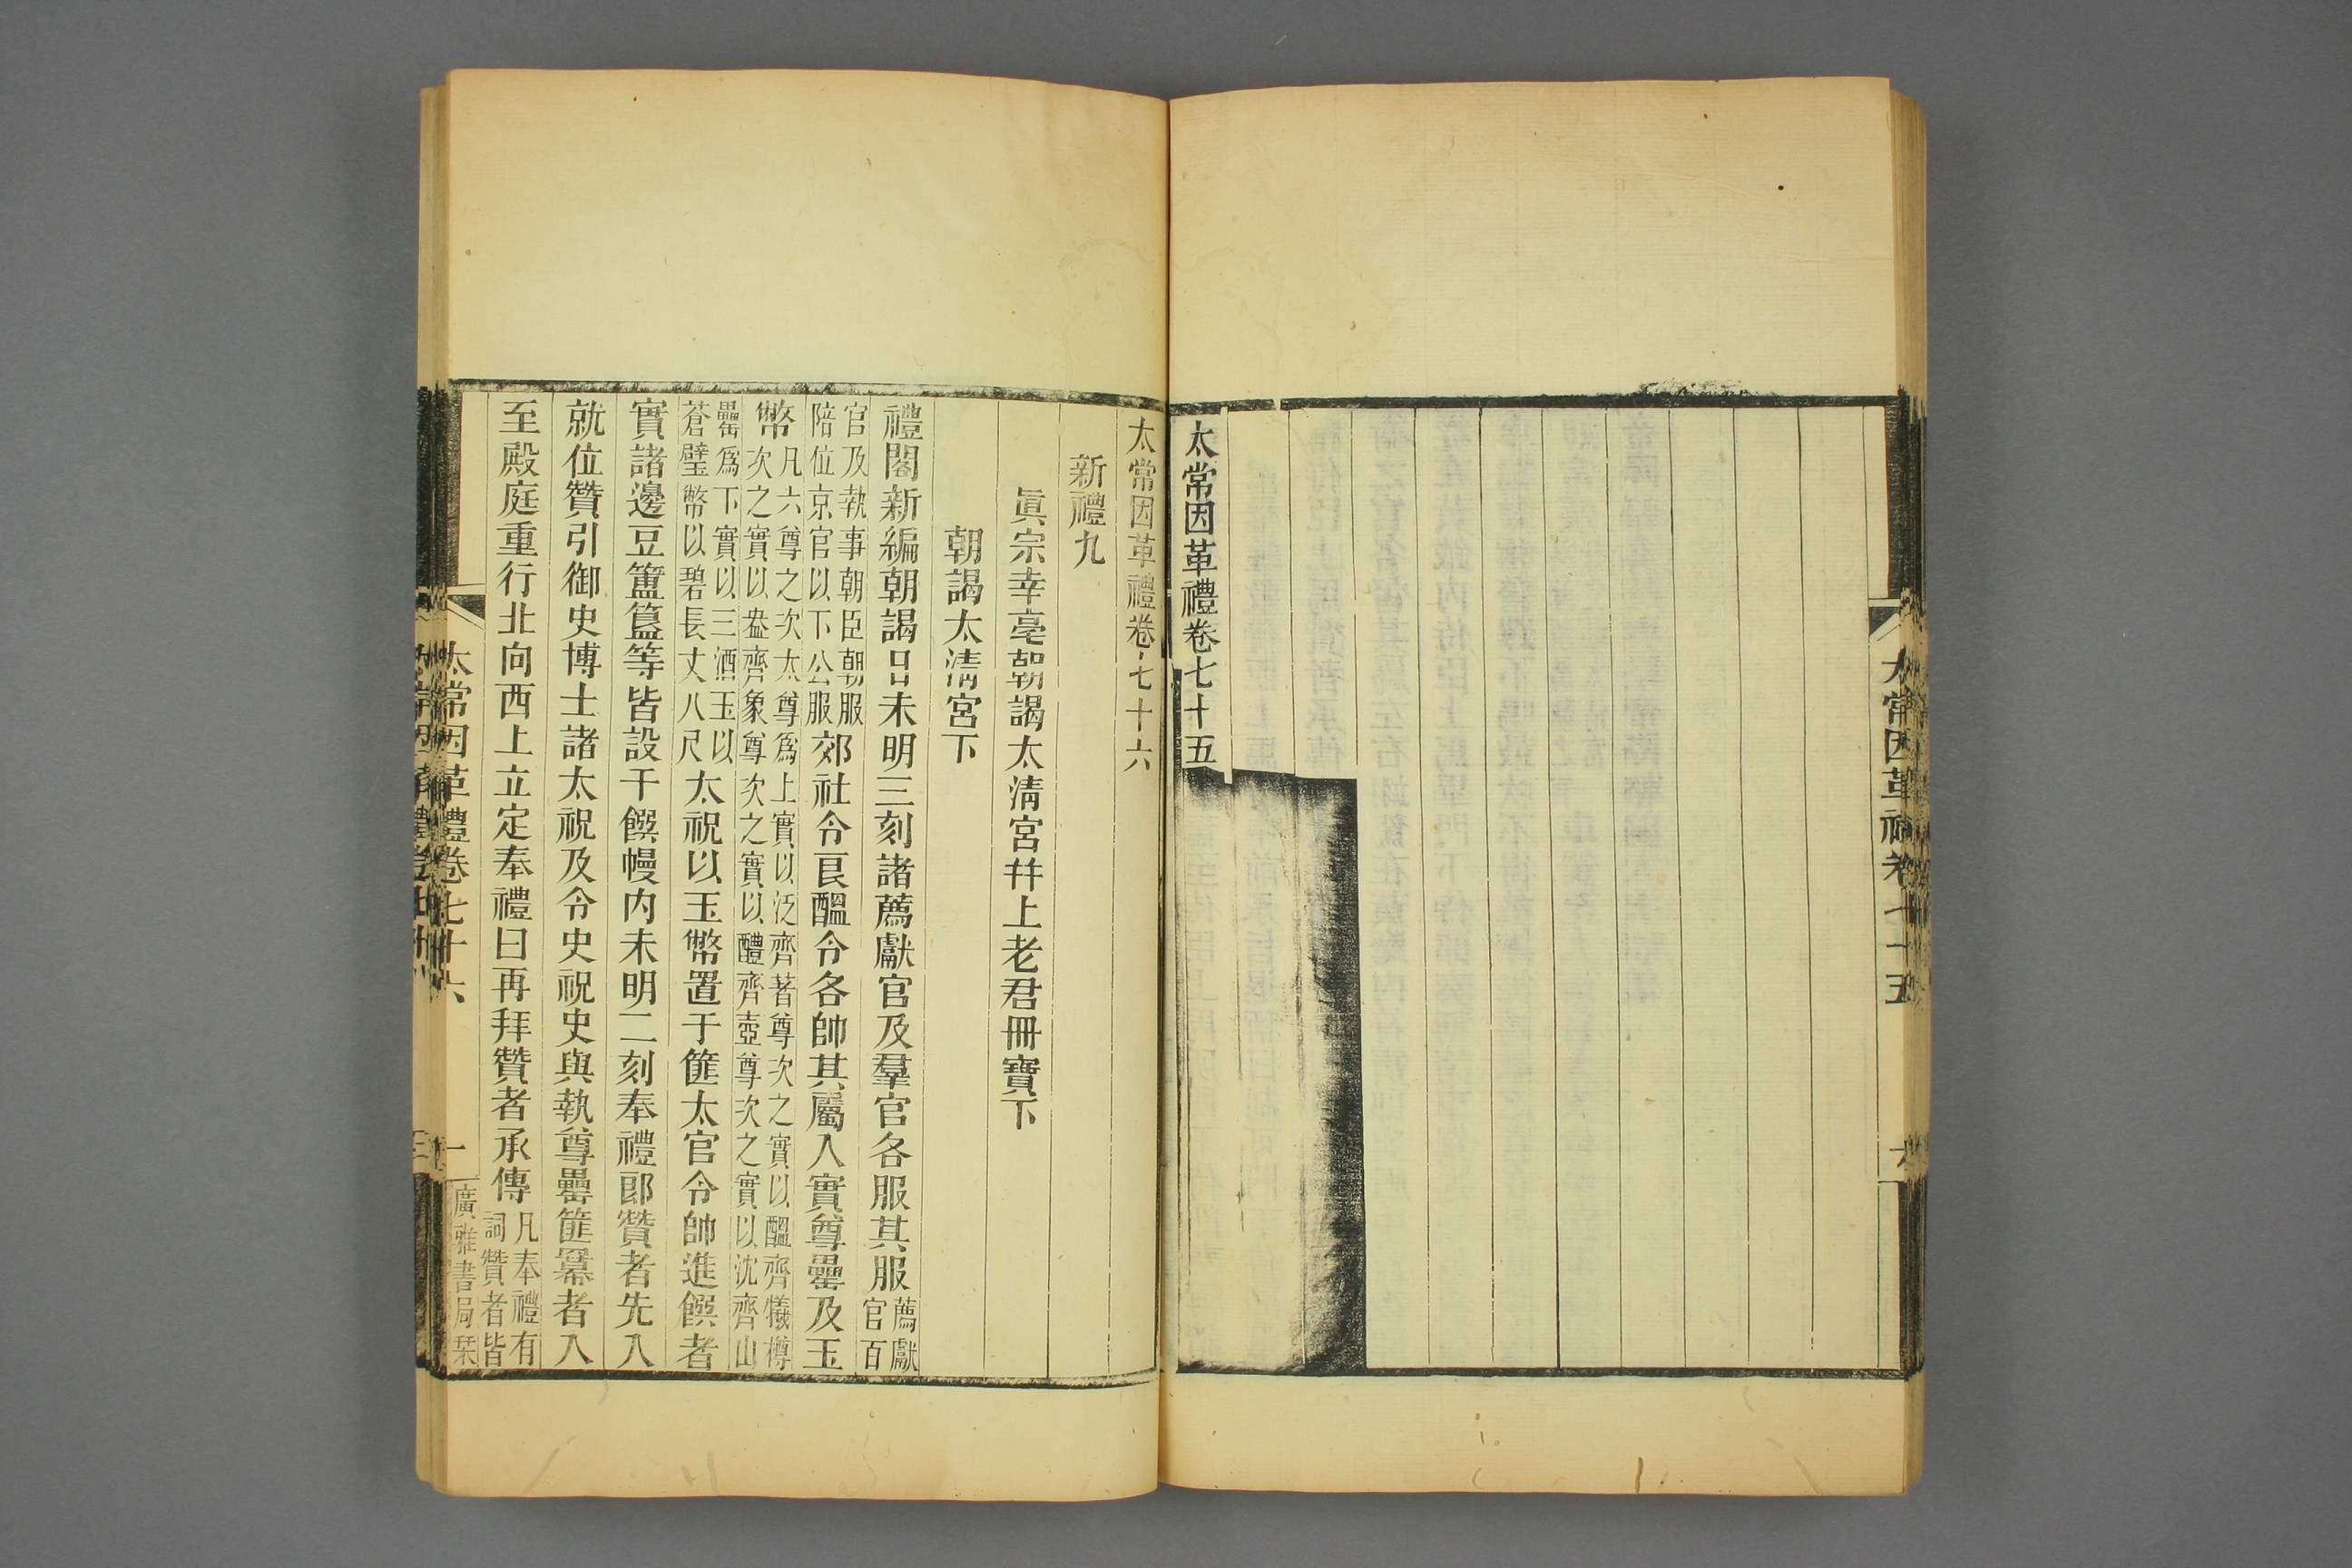 太常因革禮卷七十五
太常因革禮卷七十五
太常因革禮卷七十六
新禮九
眞宗幸亳朝謁太清宮幷上老君冊寶下
朝謁太清宮下
禮閣新編朝謁日未明三刻諸薦獻官及羣官各服其服薦獻官百
官及執事朝臣朝服陪位京官以下公服郊社令良醞令各帥其屬入實尊罍及玉
幣凡六尊之次太尊爲上實以泛齊著尊次之實以醞齊犧樽次之實以盎齊象尊次之實以醴齊壺尊次之實以沈齊山
罍爲下實以三酒玉以蒼璧幣以碧長丈八尺太祝以玉幣置于篚太官令帥進饌者
實諸邊豆簠簋等皆設于饌幔内未明二刻奉禮郎贊者先入
就位贊引御史博士諸太祝及令史祝史與執尊罍篚冪者入
至殿庭重行北向西上立定奉禮曰再拜贊者承傳凡奉禮有詞贊者皆
太常因革禮卷七十六
一
廣雅書局栞